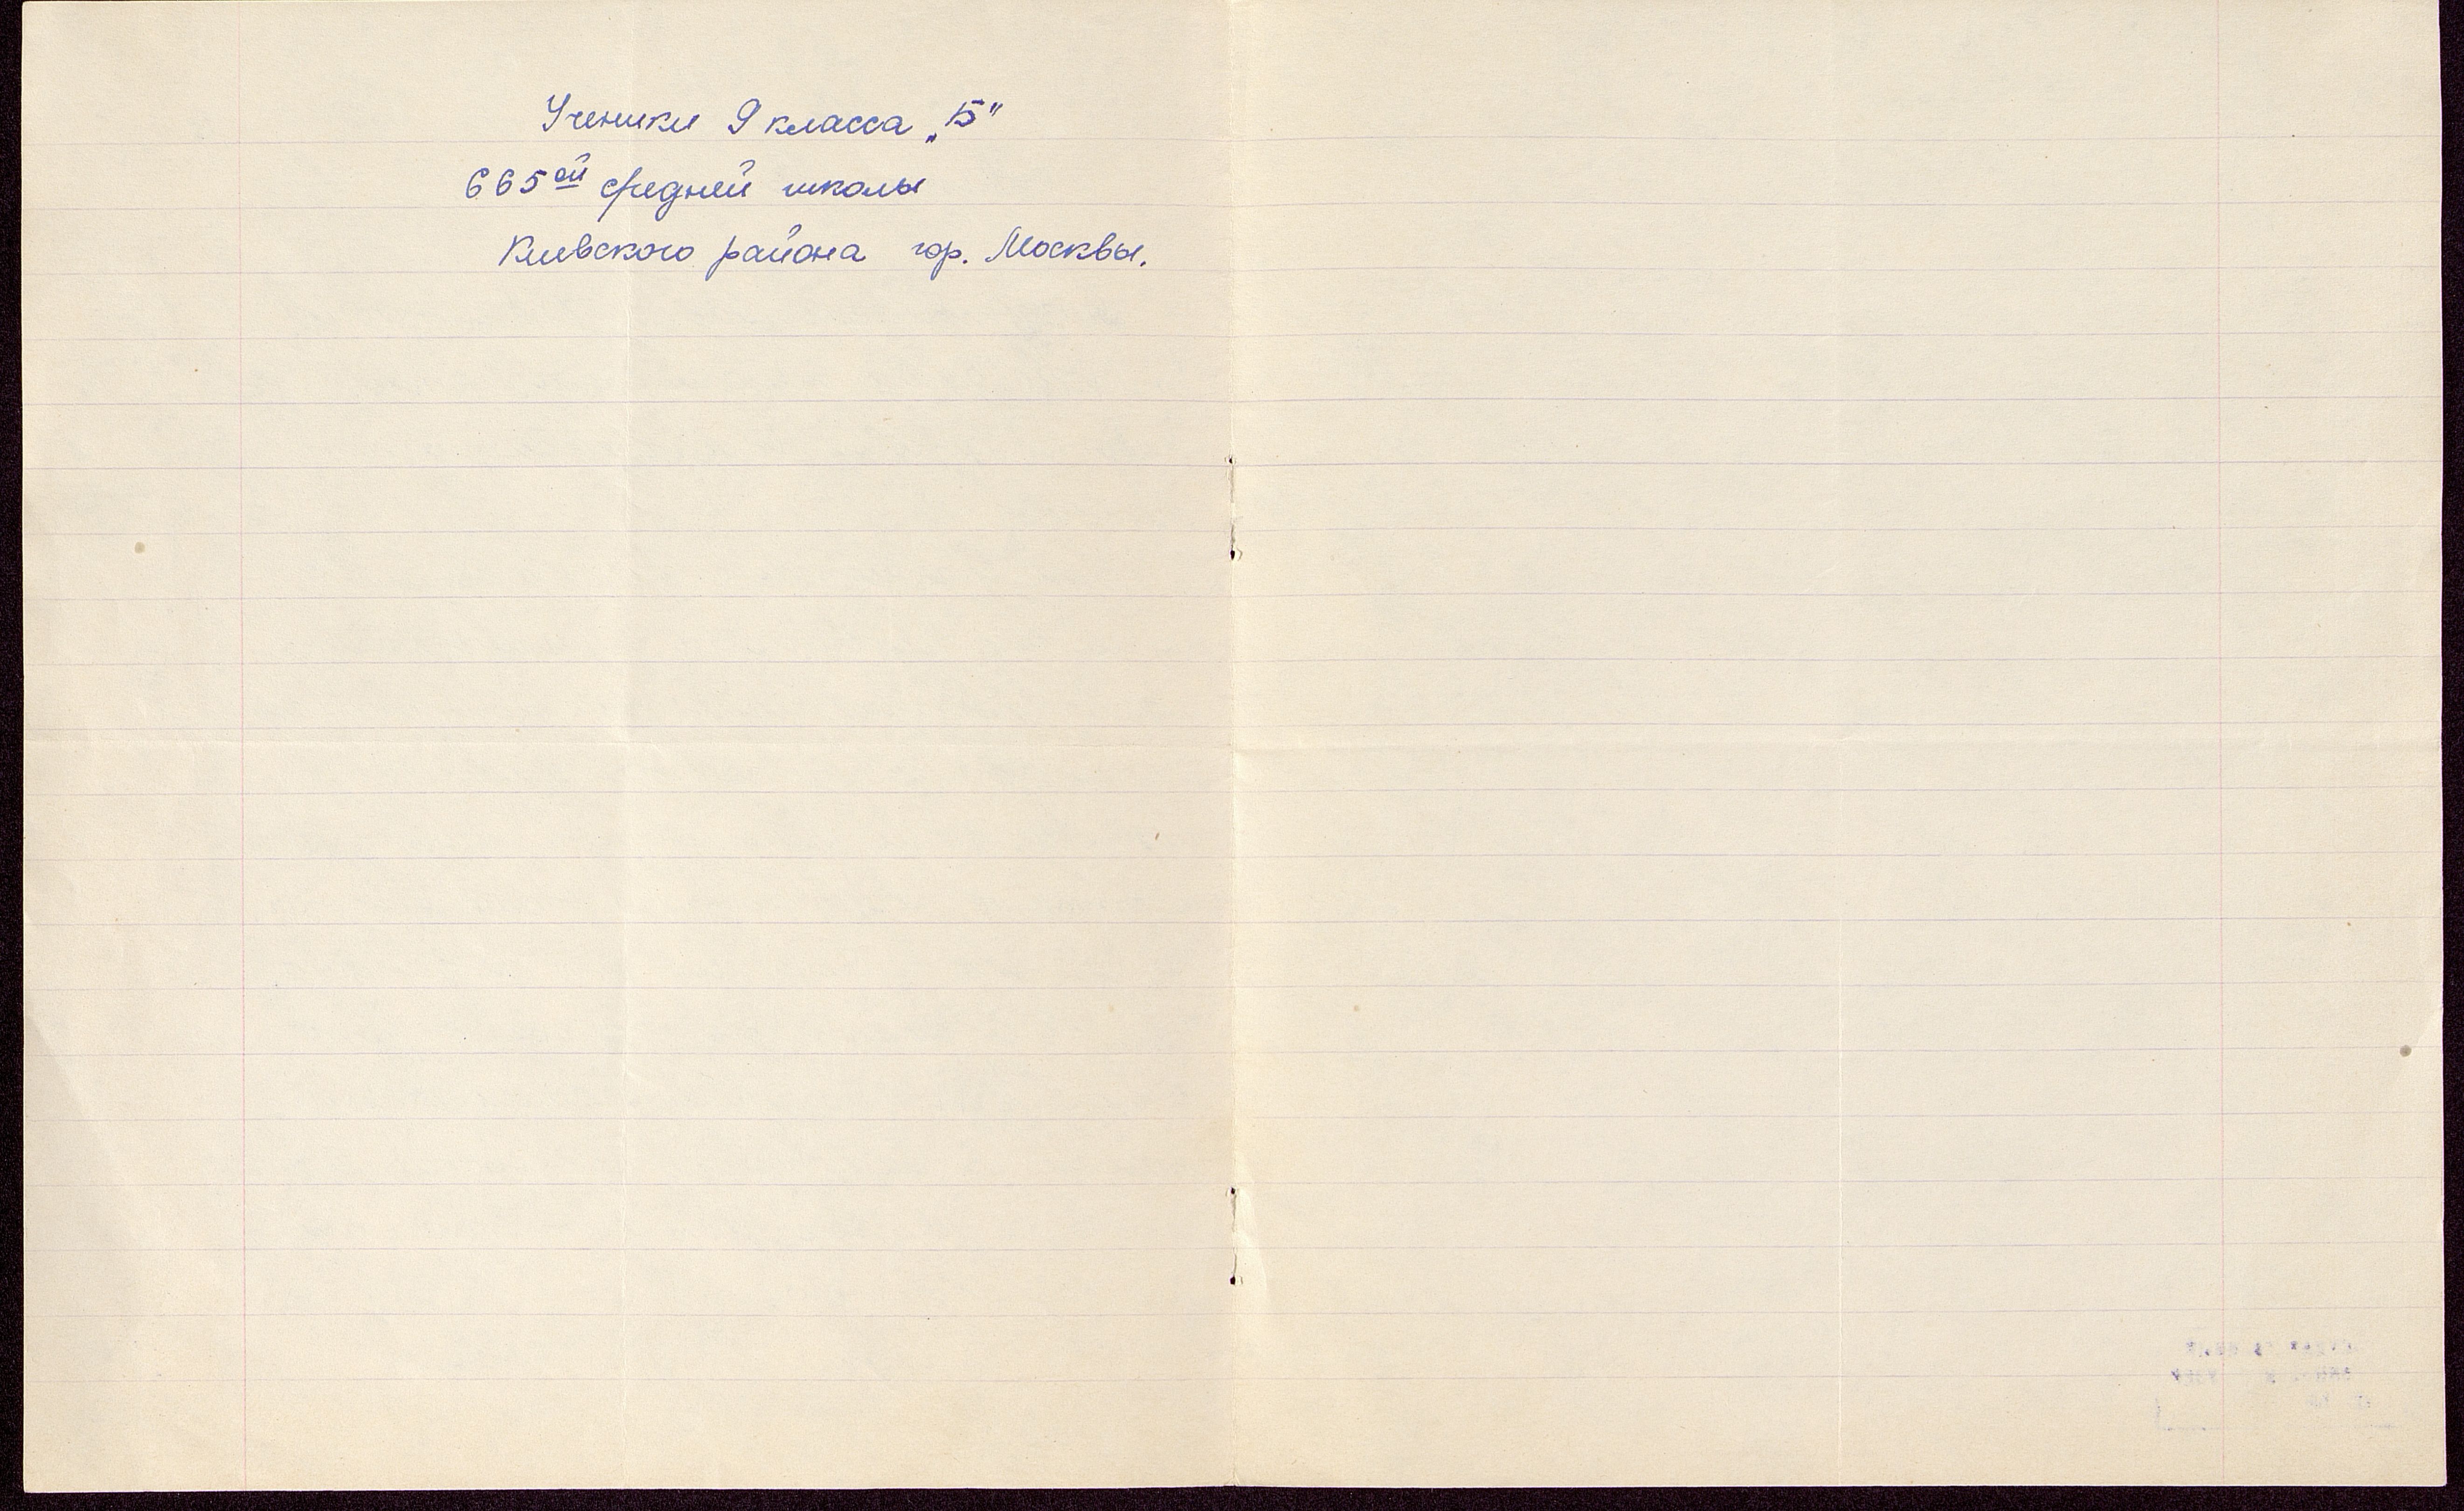 Ученики 9 класса „Б“
665ой средней школы
Киевского района гор. Москвы.